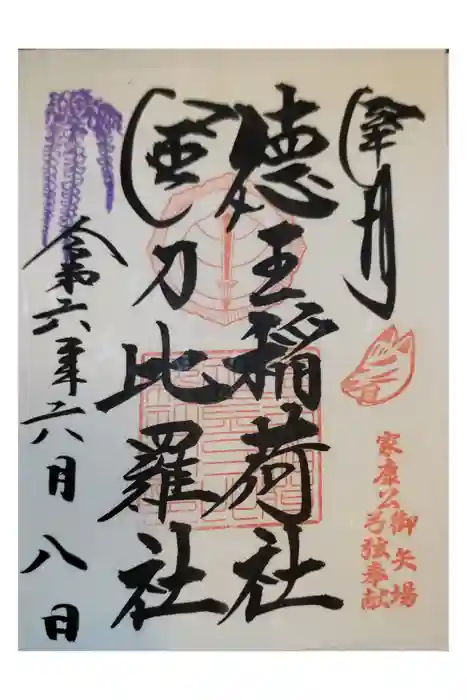 家康公
御矢場
弓弦奉献
徳王稲荷社
金刀比羅社
令和六年六月八日